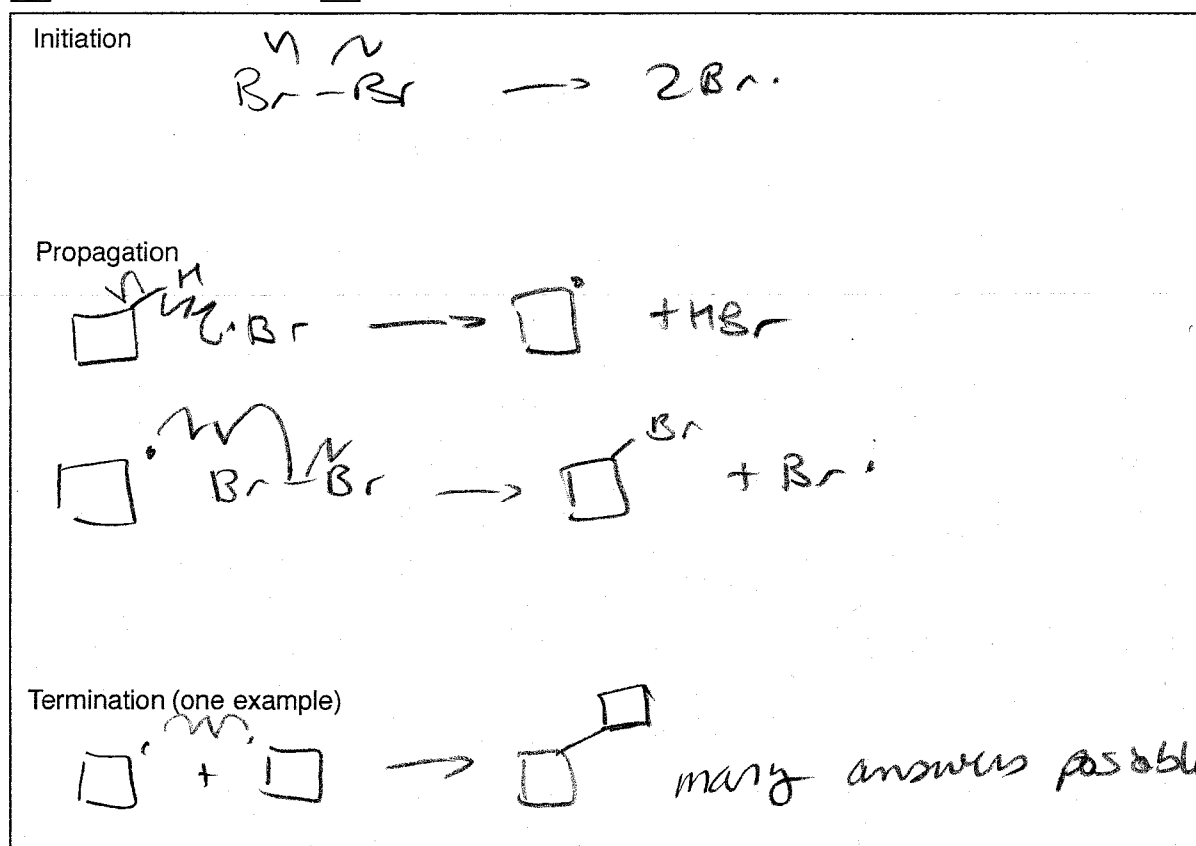 Initiation
Br – Br → 2Br·
Propagation
H
·Br → · + HBr
· Br – Br → Br + Br·
Termination (one example)
· + · → many answers possible